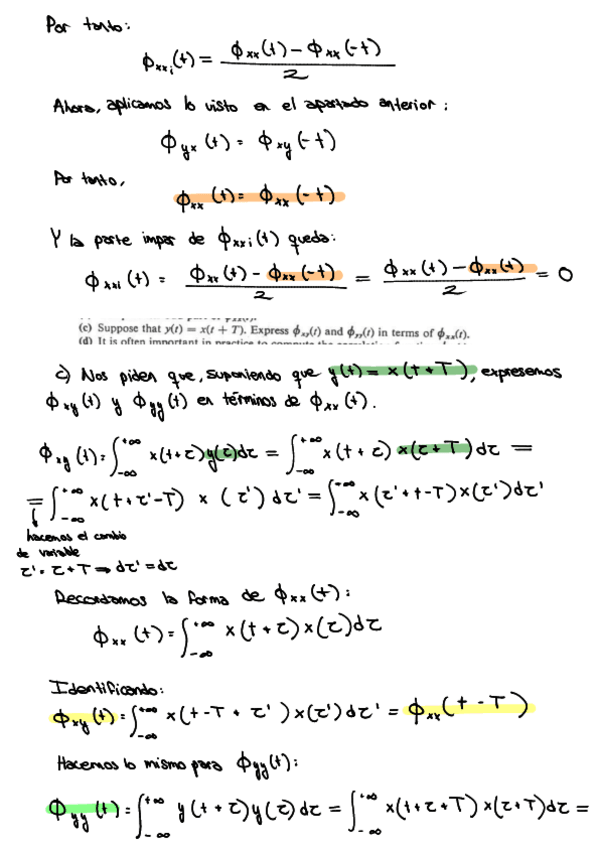 Por tanto:
ϕxxi(t) = (ϕxx(t) - ϕxx(-t)) / 2
Ahora, aplicamos lo visto en el apartado anterior:
ϕyx(t) = ϕxy(-t)
Por tanto,
ϕxx(t) = ϕxx(-t)
Y la parte impar de ϕxxi(t) queda:
ϕxxi(t) = (ϕxx(t) - ϕxx(-t)) / 2 = (ϕxx(t) - ϕxx(t)) / 2 = 0
(c) Suppose that y(t) = x(t + T). Express ϕxy(t) and ϕyy(t) in terms of ϕxx(t).
(d) It is often important in practice to compute the
c) Nos piden que, suponiendo que y(t) = x(t+T), expresemos
ϕxy(t) y ϕyy(t) en términos de ϕxx(t).
ϕxy(t) = ∫_{-∞}^{+∞} x(t+τ)y(τ)dτ = ∫_{-∞}^{+∞} x(t+τ) x(τ+T)dτ =
= ∫_{-∞}^{+∞} x(t+τ'-T) x(τ') dτ' = ∫_{-∞}^{+∞} x(τ'+t-T)x(τ')dτ'
hacemos el cambio
de variable
τ' = τ+T ⇒ dτ' = dτ
Recordamos la forma de ϕxx(t):
ϕxx(t) = ∫_{-∞}^{+∞} x(t+τ)x(τ)dτ
Identificando:
ϕxy(t) = ∫_{-∞}^{+∞} x(t-T+τ')x(τ')dτ' = ϕxx(t-T)
Hacemos lo mismo para ϕyy(t):
ϕyy(t) = ∫_{-∞}^{+∞} y(t+τ)y(τ)dτ = ∫_{-∞}^{+∞} x(t+τ+T)x(τ+T)dτ =